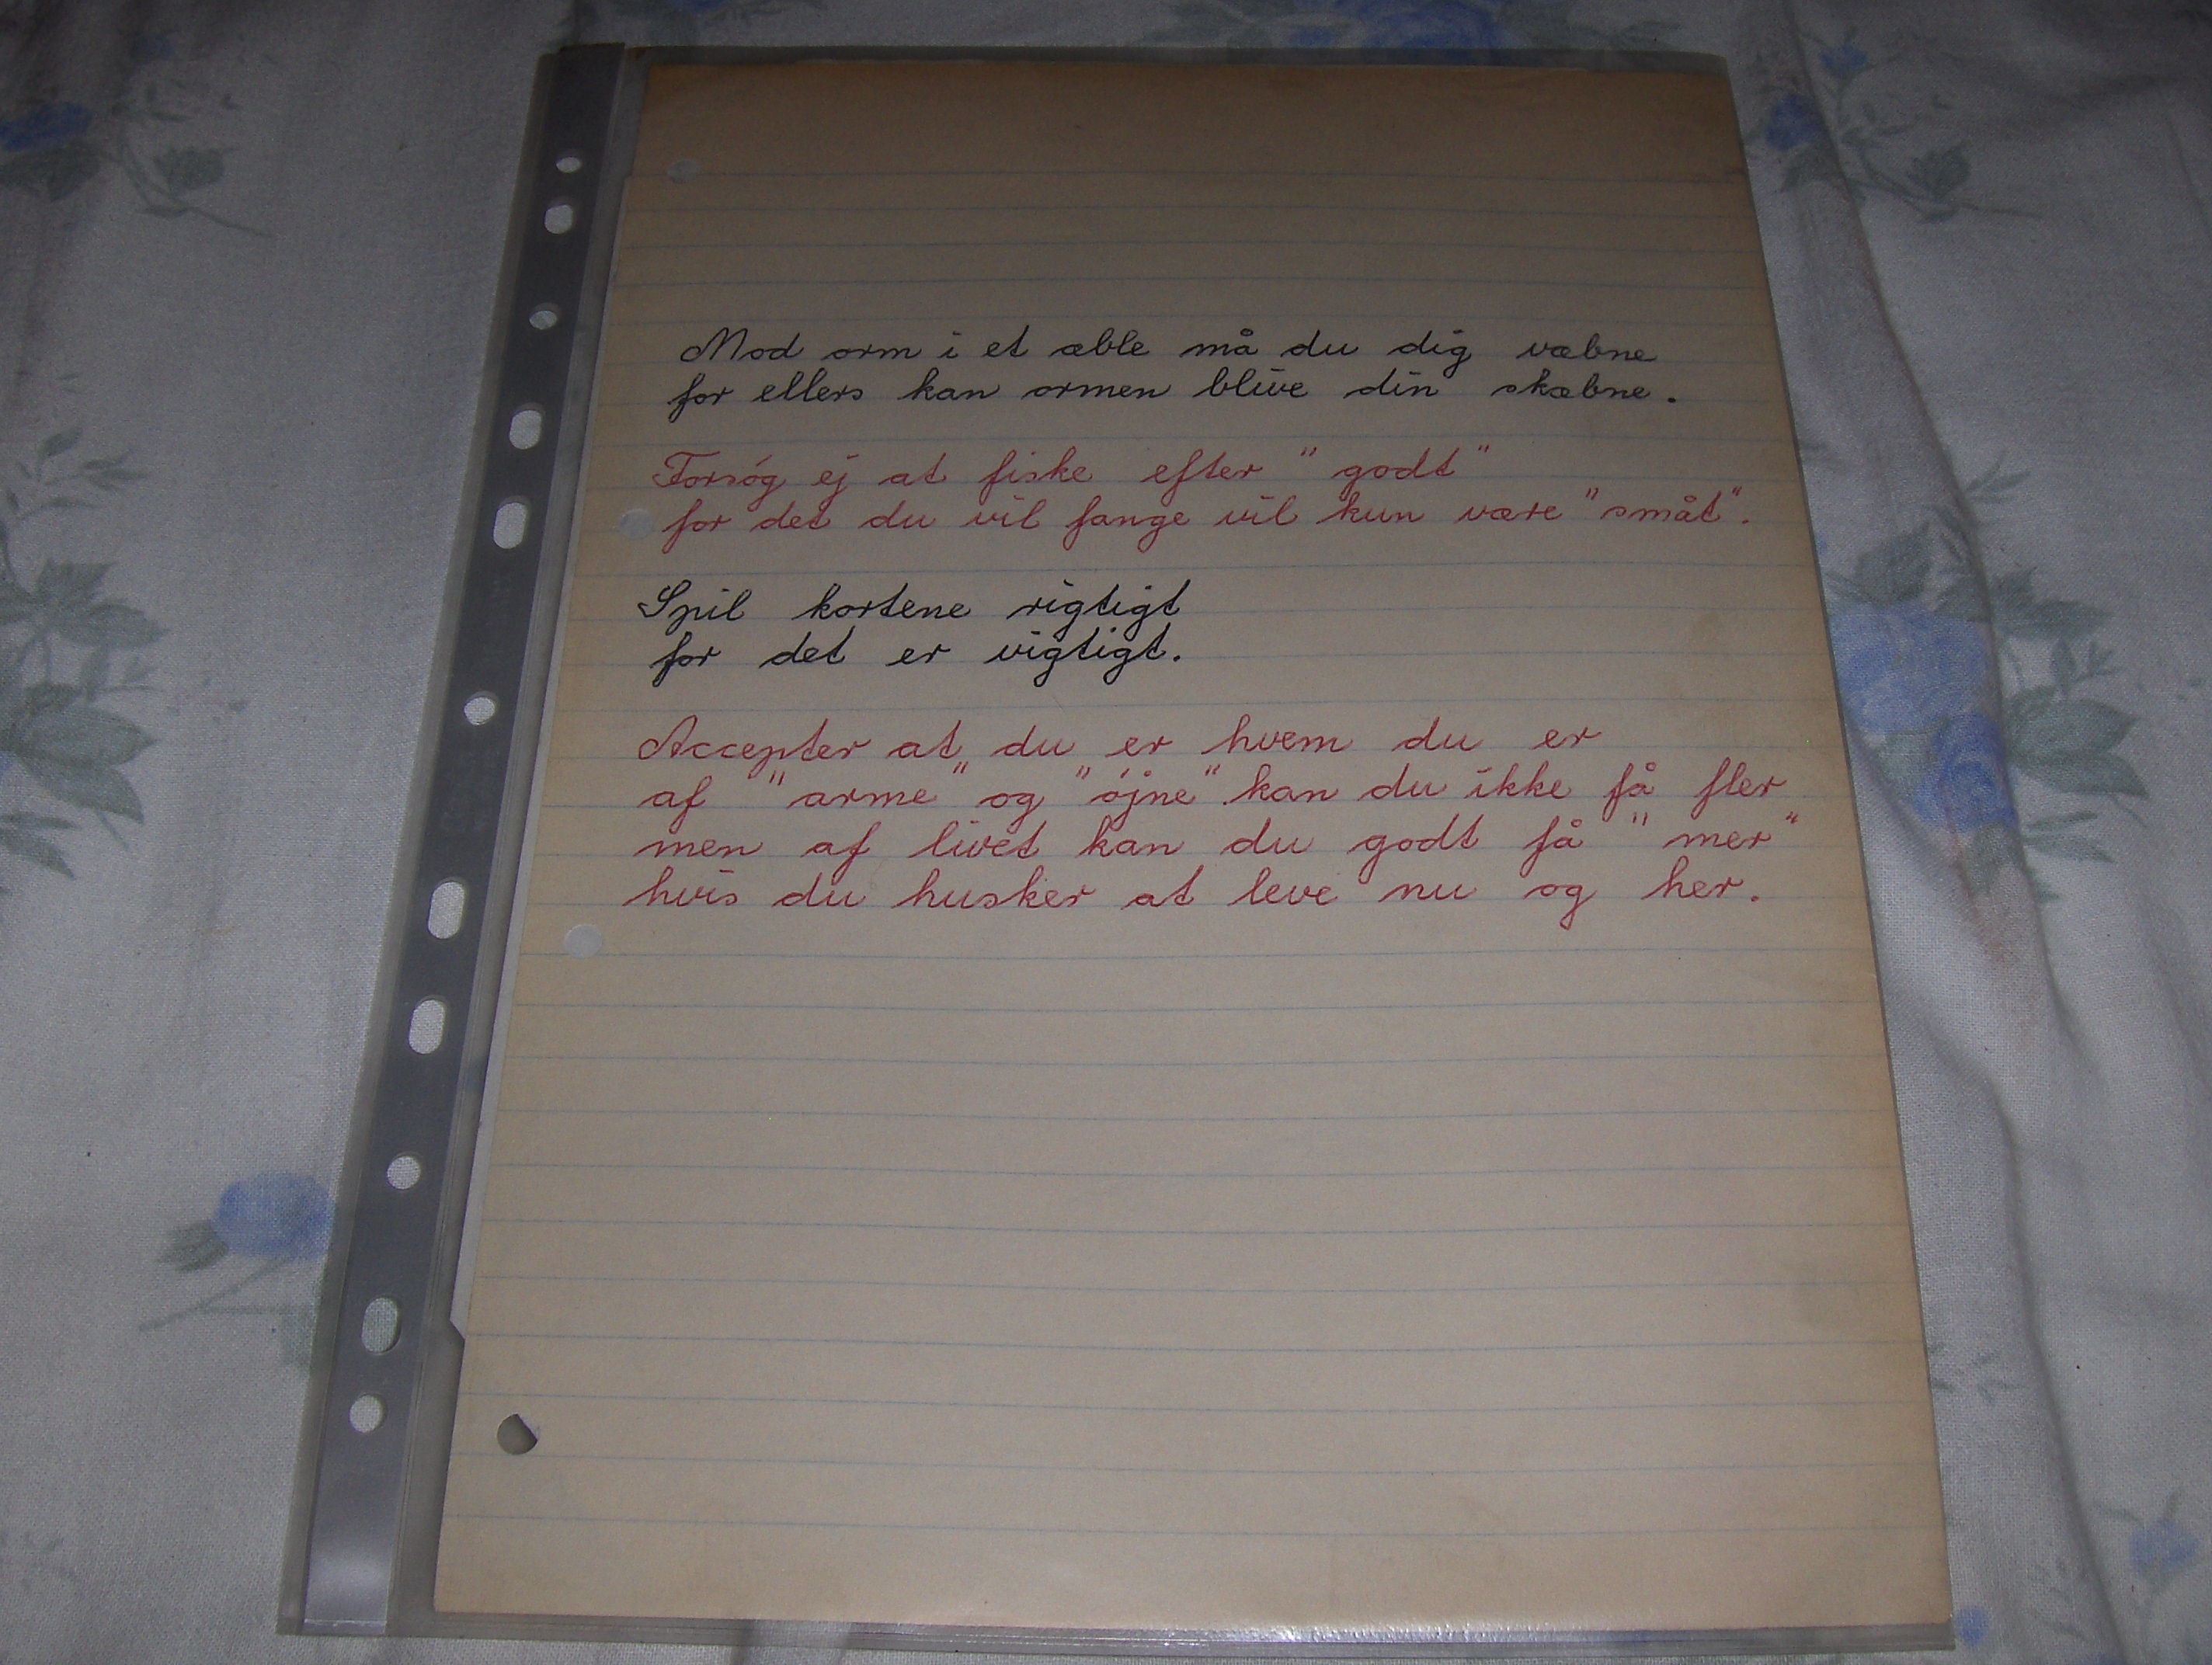 Mod orm i et æble må du dig væbne
for ellers kan ormen blive din skæbne.
Forsøg ej at fiske efter "godt"
for det du vil fange vil kun være "småt".
Spil kortene rigtigt
for det er vigtigt.
Accepter at du er hvem du er
af "arme" og "øjne" kan du ikke få fler
men af livet kan du godt få "mer"
hvis du husker at leve nu og her.